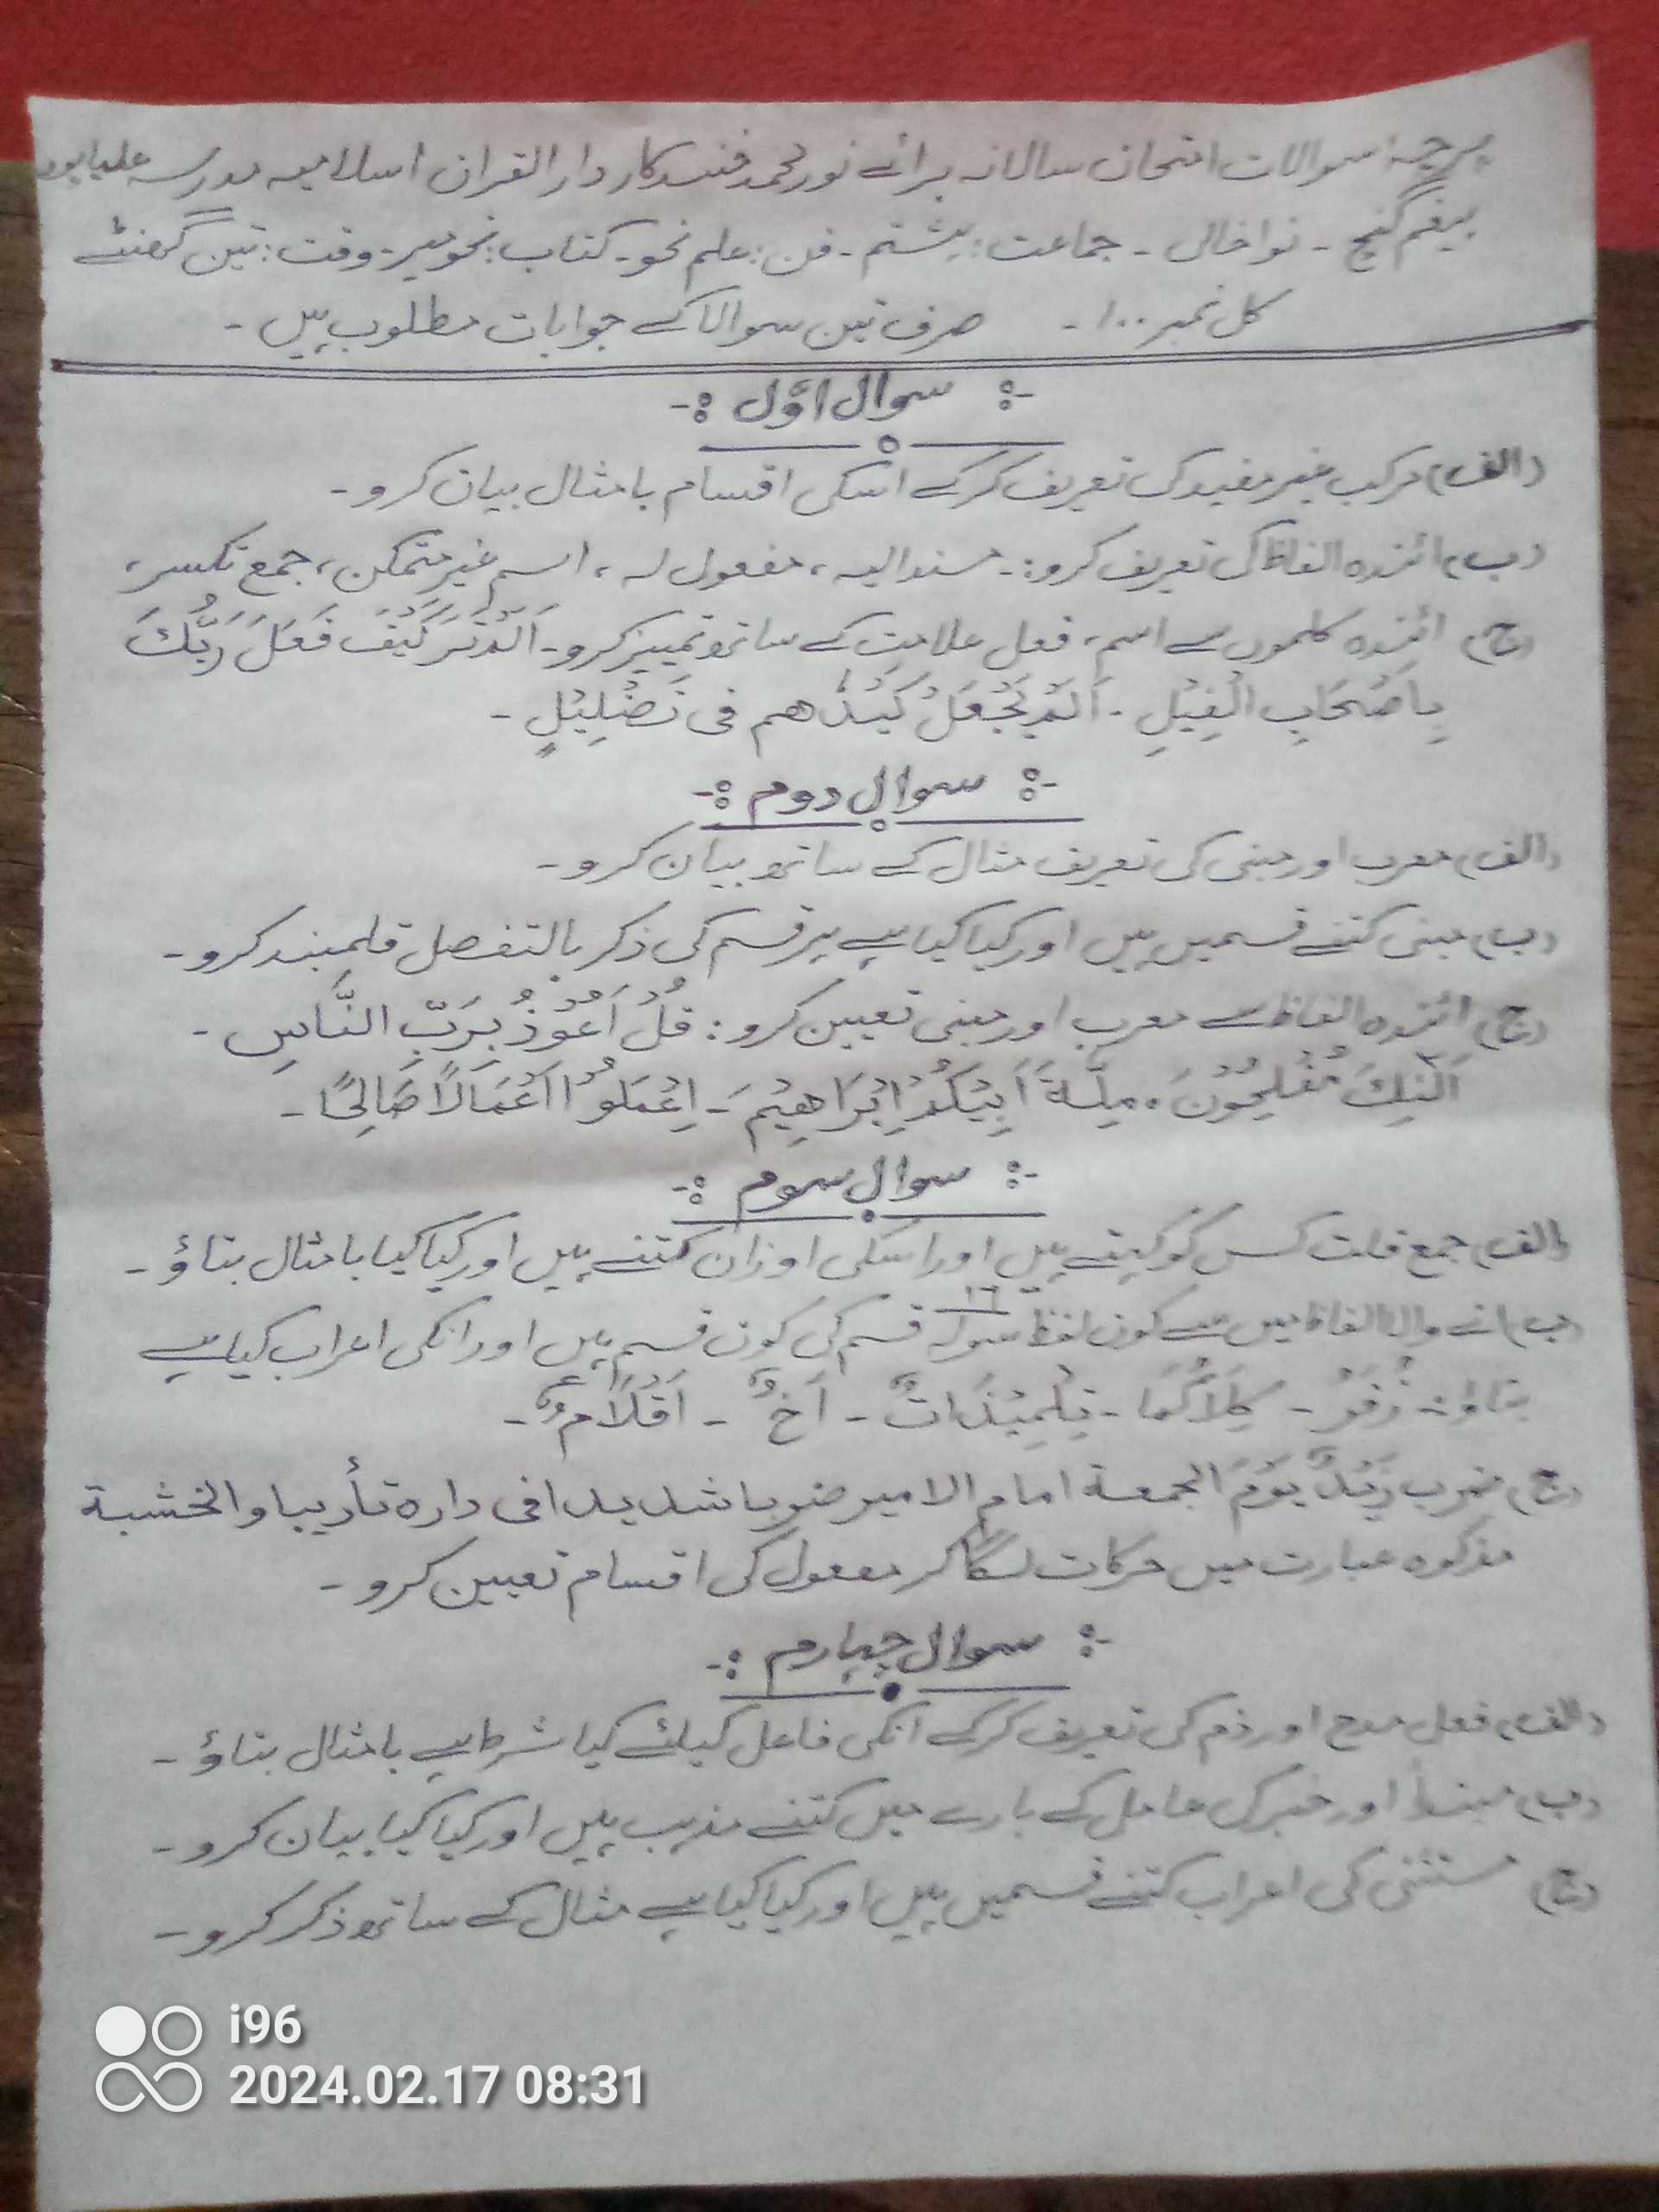 پرچہ سوالات امتحان سالانہ برائے نور محمد دار القرآن اسلامیہ مدرسہ
بیغم گنج - نواخالی - جماعت: ہشتم - فن: علم نحو - کتاب: نحومیر - وقت: تین گھنٹے
کل نمبر ۱۰۰ - صرف تین سوالا کے جوابات مطلوب ہیں -
-: سوال اوّل :-
(الف) مرکب غیر مفید کی تعریف کرکے اسکی اقسام با مثال بیان کرو -
(ب) ائندہ الفاظ کی تعریف کرو: - مسند الیہ، مفعول لہ، اسم غیر متمکن، جمع تکسر،
(ج) ائندہ کلموں سے اسم، فعل علامت کے ساتھ تمییز کرو - اَلَمْ تَرَ كَيْفَ فَعَلَ رَبُّكَ
بِاَصْحَابِ الْفِيْلِ - اَلَمْ يَجْعَلْ كَيْدَهم فى تَضْلِيْلٍ -
-: سوال دوم :-
(الف) معرب اور مبنی کی تعریف مثال کے ساتھ بیان کرو -
(ب) مبنی کتنے قسمیں ہیں اور کیا کیا ہے ہر قسم کی ذکر بالتفصل قلمبند کرو -
(ج) ائندہ الفاظ سے معرب اور مبنی تعیین کرو: قُلْ اَعُوْذُ بِرَبِّ النَّاسِ -
مُفْلِحُوْنَ، مِلَّةَ اَبِيْكُمْ اِبْرَاهِيْمَ - اِعْمَلُوْا اَعْمَالًا صَالِحًا -
-: سوال سوم :-
(الف) جمع قلت کس کو کہتے ہیں اور اسکی اوزان کتنے ہیں اور کیا کیا با مثال بتاؤ -
(ب) انے والا الفاظ میں سے کون لفظ سولہ ۱٦ قسم کی کون قسم ہیں اور انکی اعراب کیا ہے
بتاؤ: زُفَرُ - كِلَاكُمَا - تِلْمِيْذَاتٌ - اَخٌ - اَقْلَامٌ -
(ج) ضرب زَيْدٌ يَوْمَ الجمعة امام الامير ضربا شديدا فى داره تأديبا والخشبة
مذکورہ عبارت میں حرکات لگا کر مفعول کی اقسام تعیین کرو -
-: سوال چہارم :-
(الف) فعل مدح اور ذم کی تعریف کرکے انکی فاعل کیلئے کیا شرط ہے با مثال بتاؤ -
(ب) مبتدأ اور خبر کی عامل کے بارے میں کتنے مذہب ہیں اور کیا کیا بیان کرو -
(ج) مستثنی کی اعراب کتنے قسمیں ہیں اور کیا کیا ہے مثال کے ساتھ ذکر کرو -
i96
2024.02.17 08:31